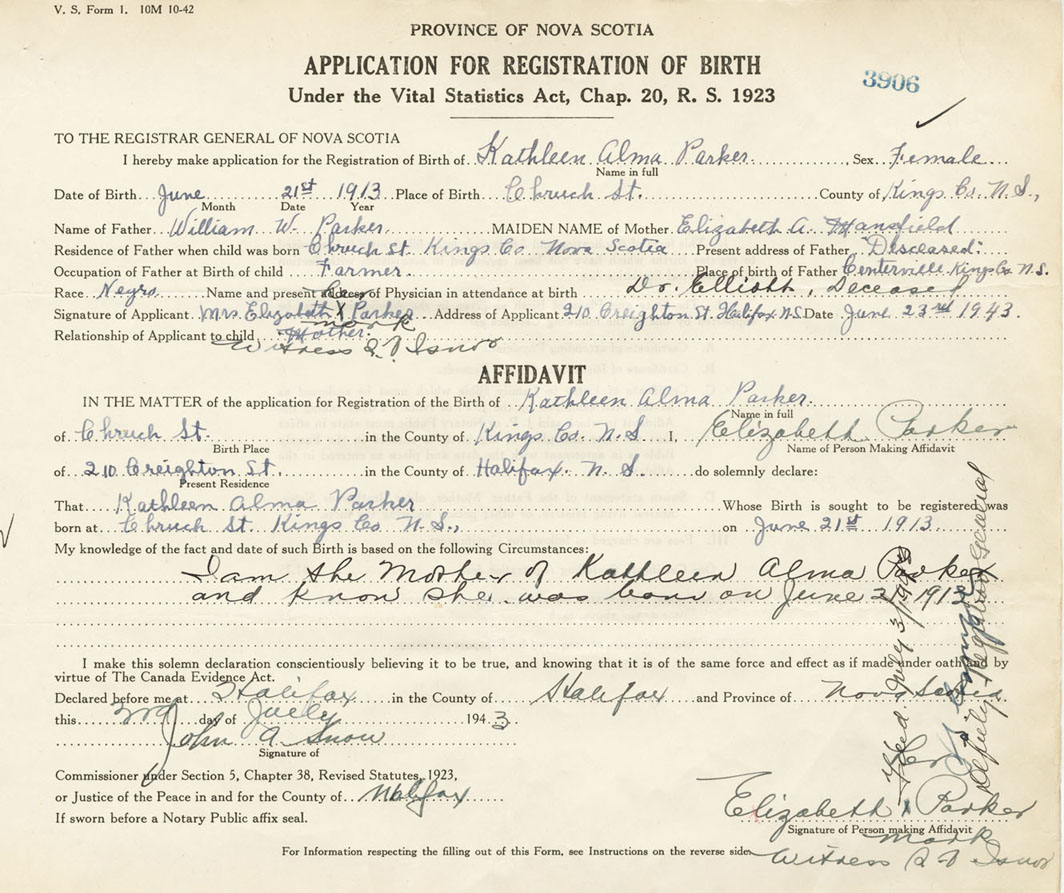 V. S. Form 1. 10M 10-42
PROVINCE OF NOVA SCOTIA
APPLICATION FOR REGISTRATION OF BIRTH
3906
Under the Vital Statistics Act, Chap. 20, R. S. 1923
TO THE REGISTRAR GENERAL OF NOVA SCOTIA
I hereby make application for the Registration of Birth of Kathleen Alma Parker Sex Female
Name in full
Date of Birth June 21st 1913 Place of Birth Chruch St. County of Kings Co. N.S.,
Month Date Year
Name of Father William W. Parker MAIDEN NAME of Mother Elizabeth A. Mansfield
Residence of Father when child was born Chruch St. Kings Co Nova Scotia Present address of Father "Disceased"
Occupation of Father at Birth of child Farmer. Place of birth of Father Centerville Kings Co N.S.
Race Negro Name and present address of Physician in attendance at birth Dr. Elliott, Deceased
her
Signature of Applicant Mrs. Elizabeth X Parker Address of Applicant 210 Creighton St. Halifax N.S. Date June 23rd 1943.
mark
Relationship of Applicant to child Mother.
Witness
AFFIDAVIT
IN THE MATTER of the application for Registration of the Birth of Kathleen Alma Parker
Name in full
of Chruch St. in the County of Kings Co. N.S I, Elizabeth Parker
Birth Place Name of Person Making Affidavit
of 210 Creighton St. in the County of Halifax. N.S. do solemnly declare:
Present Residence
That Kathleen Alma Parker Whose Birth is sought to be registered was
born at Chruch St. Kings Co N.S., on June 21st 1913.
My knowledge of the fact and date of such Birth is based on the following Circumstances:
I am the Mother of Kathleen Alma Parker
and know she was born on June 21 1913
I make this solemn declaration conscientiously believing it to be true, and knowing that it is of the same force and effect as if made under oath and by
virtue of The Canada Evidence Act.
Declared before me at Halifax in the County of Halifax and Province of Nova Scotia
this 2nd day of July 1943
John A. Snow
Signature of
Commissioner under Section 5, Chapter 38, Revised Statutes, 1923,
or Justice of the Peace in and for the County of Halifax
If sworn before a Notary Public affix seal.
Her
Elizabeth X Parker
Signature of Person making Affidavit
mark
For Information respecting the filling out of this Form, see Instructions on the reverse side.
Witness
Filed July 3/1943
Deputy Registrar General